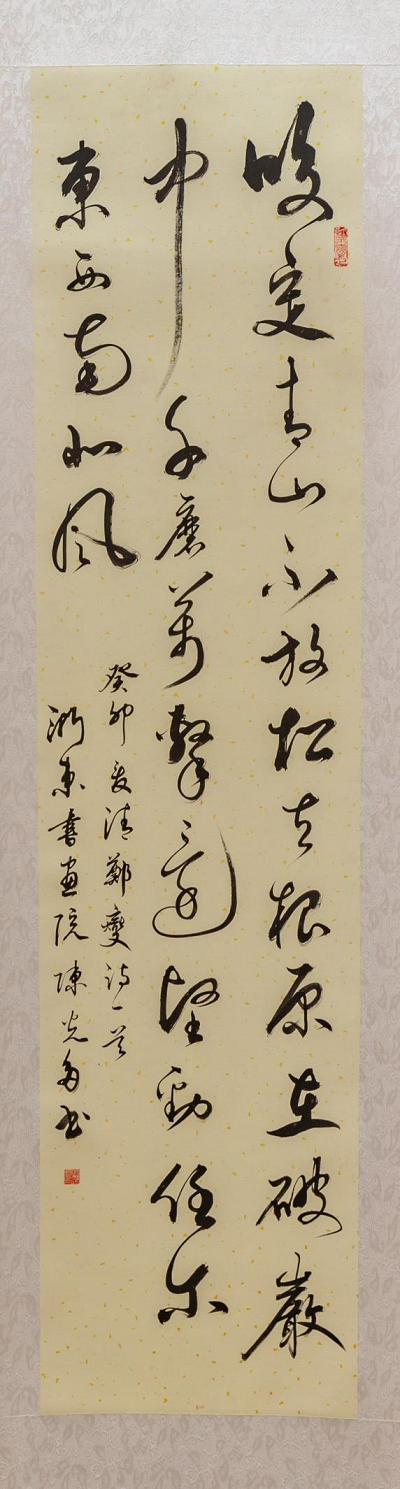 咬定青山不放松立根原在破巖
中千磨萬擊還堅勁任尔
東西南北風
癸卯夏清鄭燮詩一首
浙東書畫院陳光書